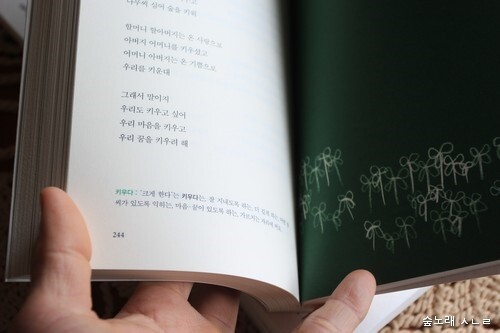 나무씨 심어 숲을 키워
할머니 할아버지는 온 사랑으로
아버지 어머니를 키우셨고
어머니 아버지는 온 기쁨으로
우리를 키운대
그래서 말이지
우리도 키우고 싶어
우리 마음을 키우고
우리 꿈을 키우려 해
키우다 : ‘크게 한다’는 키우다는, 잘 지내도록 하는,
씨가 있도록 익히는, 마음·꿈이 있도록 하는,
244
숲노래 ㅅㄴㄹ